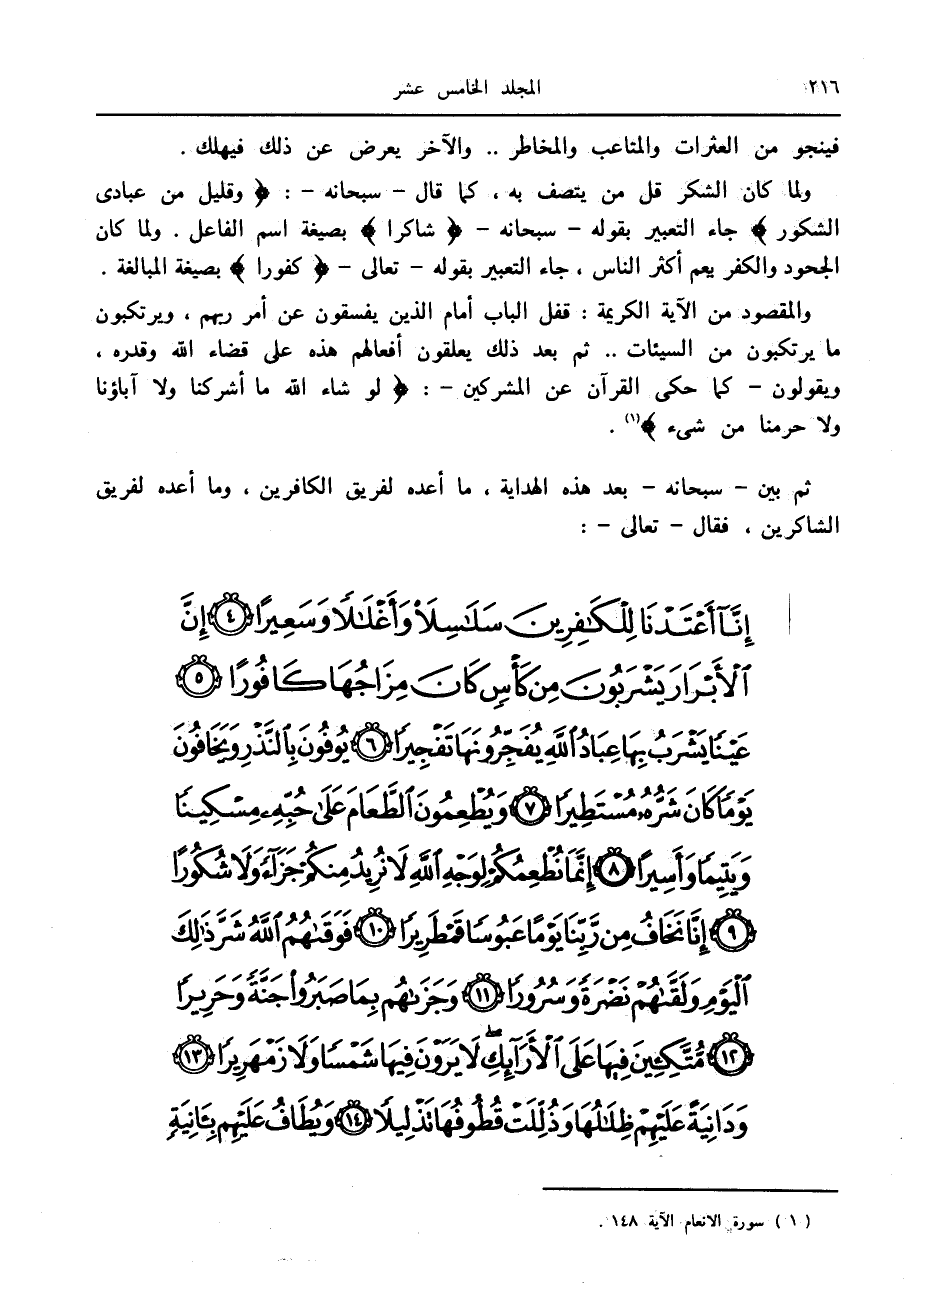 ٢١٦ المجلد الخامس عشر
فينجو من العثرات والمتاعب والمخاطر .. والآخر يعرض عن ذلك فيهلك .
ولما كان الشكر قل من يتصف به ، كما قال – سبحانه – : ﴿ وقليل من عبادى
الشكور ﴾ جاء التعبير بقوله – سبحانه – ﴿ شاكرا ﴾ بصيغة اسم الفاعل . ولما كان
الجحود والكفر يعم أكثر الناس ، جاء التعبير بقوله – تعالى – ﴿ كفورا ﴾ بصيغة المبالغة .
والمقصود من الآية الكريمة : قفل الباب أمام الذين يفسقون عن أمر ربهم ، ويرتكبون
ما يرتكبون من السيئات .. ثم بعد ذلك يعلقون أفعالهم هذه على قضاء الله وقدره ،
ويقولون – كما حكى القرآن عن المشركين – : ﴿ لو شاء الله ما أشركنا ولا آباؤنا
ولا حرمنا من شىء ﴾(١) .
ثم بين – سبحانه – بعد هذه الهداية ، ما أعده لفريق الكافرين ، وما أعده لفريق
الشاكرين ، فقال – تعالى – :
إِنَّآ أَعْتَدْنَا لِلْكَٰفِرِينَ سَلَٰسِلَا۟ وَأَغْلَٰلًا وَسَعِيرًا ﴿٤﴾ إِنَّ
ٱلْأَبْرَارَ يَشْرَبُونَ مِن كَأْسٍ كَانَ مِزَاجُهَا كَافُورًا ﴿٥﴾
عَيْنًا يَشْرَبُ بِهَا عِبَادُ ٱللَّهِ يُفَجِّرُونَهَا تَفْجِيرًا ﴿٦﴾ يُوفُونَ بِٱلنَّذْرِ وَيَخَافُونَ
يَوْمًا كَانَ شَرُّهُۥ مُسْتَطِيرًا ﴿٧﴾ وَيُطْعِمُونَ ٱلطَّعَامَ عَلَىٰ حُبِّهِۦ مِسْكِينًا
وَيَتِيمًا وَأَسِيرًا ﴿٨﴾ إِنَّمَا نُطْعِمُكُمْ لِوَجْهِ ٱللَّهِ لَا نُرِيدُ مِنكُمْ جَزَآءً وَلَا شُكُورًا
﴿٩﴾ إِنَّا نَخَافُ مِن رَّبِّنَا يَوْمًا عَبُوسًا قَمْطَرِيرًا ﴿١٠﴾ فَوَقَىٰهُمُ ٱللَّهُ شَرَّ ذَٰلِكَ
ٱلْيَوْمِ وَلَقَّىٰهُمْ نَضْرَةً وَسُرُورًا ﴿١١﴾ وَجَزَىٰهُم بِمَا صَبَرُوا۟ جَنَّةً وَحَرِيرًا
﴿١٢﴾ مُّتَّكِـِٔينَ فِيهَا عَلَى ٱلْأَرَآئِكِ ۖ لَا يَرَوْنَ فِيهَا شَمْسًا وَلَا زَمْهَرِيرًا ﴿١٣﴾
وَدَانِيَةً عَلَيْهِمْ ظِلَٰلُهَا وَذُلِّلَتْ قُطُوفُهَا تَذْلِيلًا ﴿١٤﴾ وَيُطَافُ عَلَيْهِم بِـَٔانِيَةٍ
( ١ ) سورة الانعام الآية ١٤٨ .